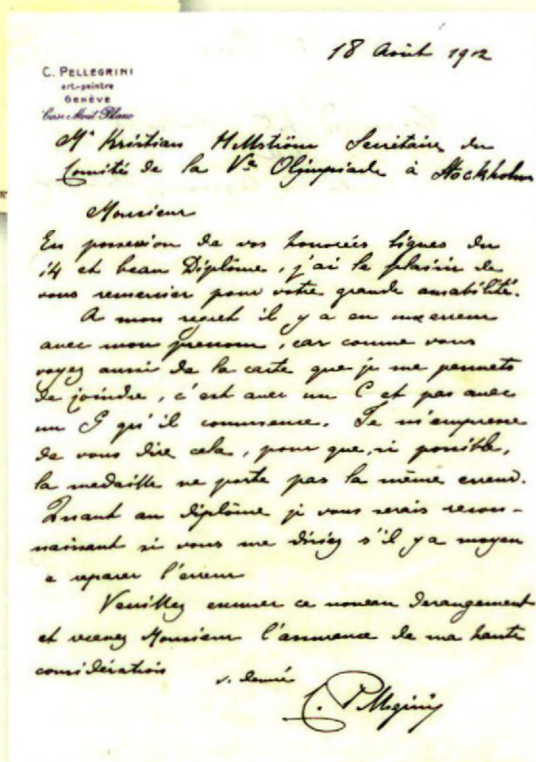 18 Août 1912
C. PELLEGRINI
art.-peintre
GENÈVE
Case Mont Blanc
Mr Kristian Hellström Secrétaire du
Comité de la Ve Olimpiade à Stockholm
Monsieur
En possession de vos honorées lignes du
14 et beau Diplôme, j'ai le plaisir de
vous remercier pour votre grande amabilité.
A mon regret il y a eu une erreur
avec mon prenom, car comme vous
voyez aussi de la carte que je me permets
de joindre, c'est avec un C et pas avec
un G qu'il commence. Je m'empresse
de vous dire cela, pour que, si possible,
la medaille ne porte pas la même erreur.
Quant au diplôme je vous serais recon-
naissant si vous me diriez s'il y a moyen
a reparer l'erreur
Veuillez excuser ce nouveau derangement
et recevez Monsieur l'assurance de ma haute
considération
v. devoué
C. Pellegrini